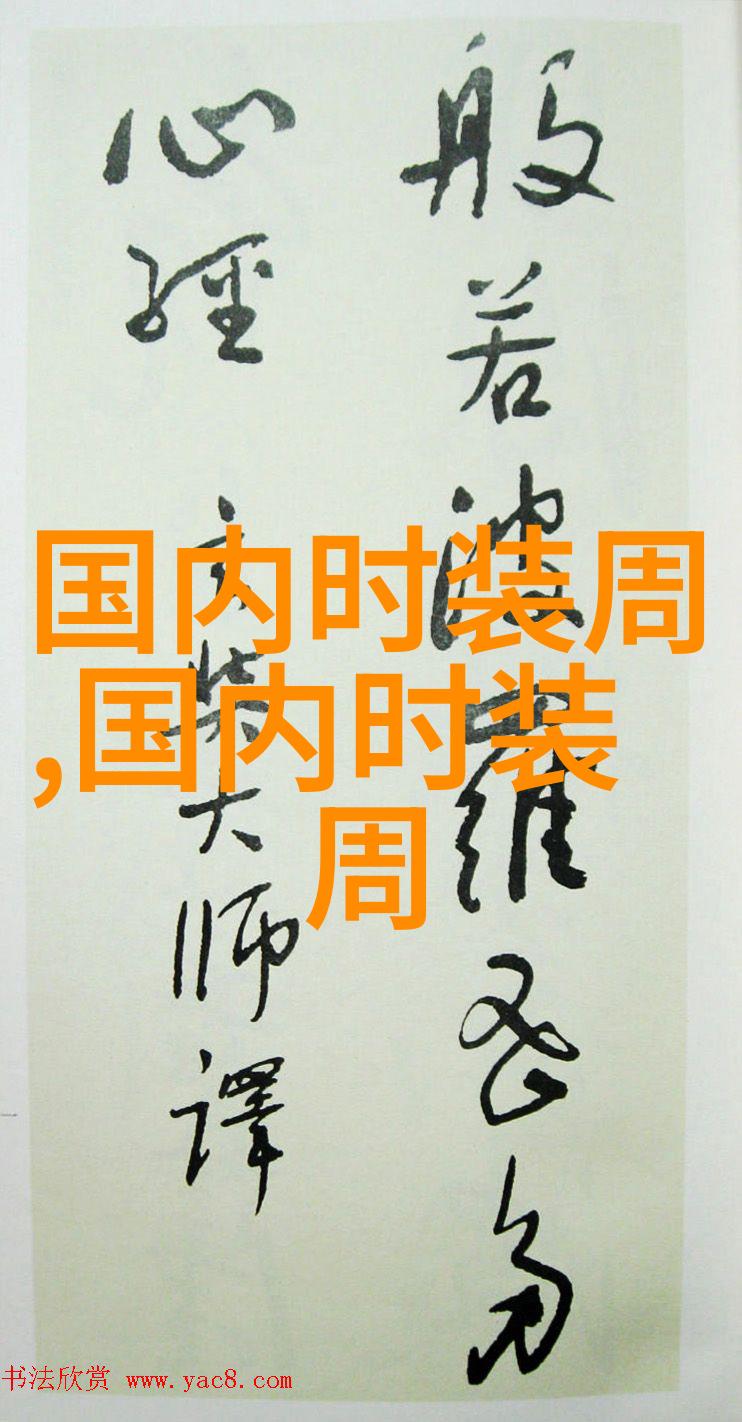 般若波羅密多
心經 玄奘大师譯
国内时装周
,国内时装
周
书法欣赏 www.yac8.com